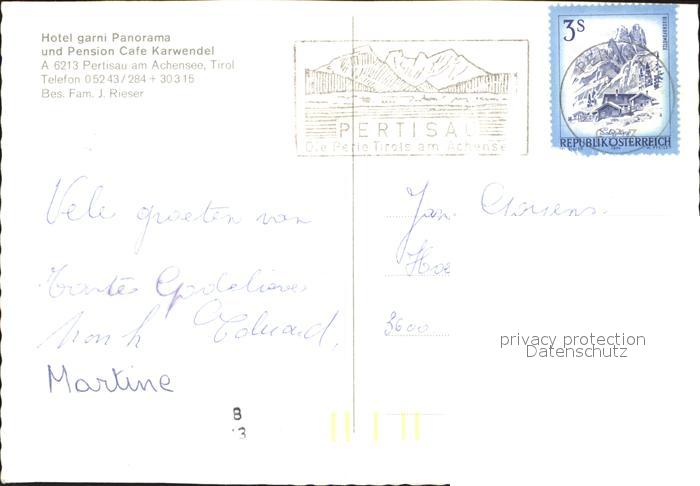 Hotel garni Panorama
und Pension Cafe Karwendel
A 6213 Pertisau am Achensee, Tirol
Telefon 05243/284 + 30315
Bes. Fam. J. Rieser
PERTISAU
Die Perle Tirols am Achensee
3S
REPUBLIK ÖSTERREICH
Vele groeten van
Tante Godelieve
Eduard,
Martine
Jan
Hoe
3600
privacy protection
Datenschutz
B
3